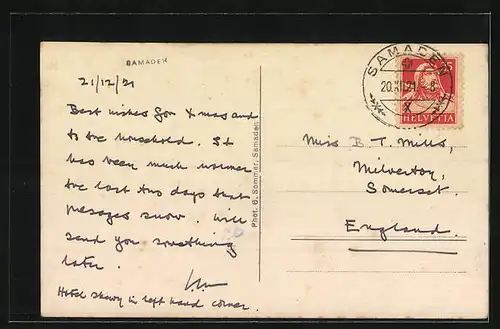 SAMADEN
21/12/21
Best wishes for Xmas and
to the household. It
has been much warmer
the last two days that
presages snow. Will
send you something
later.
Hotel shewn in left hand corner.
Phot. G. Sommer, Samaden
SAMADEN
20.XII.21. 8
X
25
HELVETIA
Miss B. T. Mills,
Milverton,
Somerset.
England.